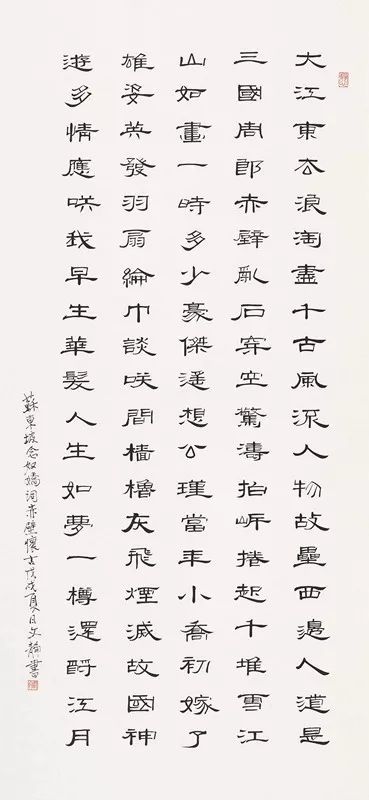 大江東去浪淘盡千古風流人物故壘西邊人道是
三國周郎赤壁亂石穿空驚濤拍岸捲起千堆雪江
山如畫一時多少豪傑遙想公瑾當年小喬初嫁了
雄姿英發羽扇綸巾談咲間檣櫓灰飛煙滅故國神
遊多情應咲我早生華髮人生如夢一樽還酹江月
蘇東坡念奴嬌詞赤壁懷古戊戌夏日文書